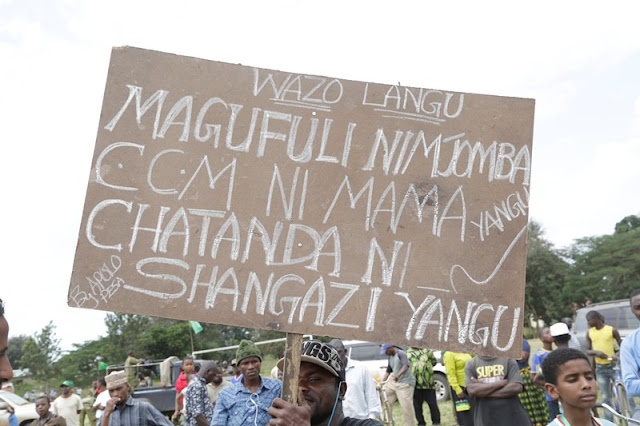 WAZO LANGU
MAGUFULI NIMJOMBA
C.C.M NI MAMA YANGU
CHATANDA NI
SHANGAZI YANGU
By APOLO
PESA
SUPER